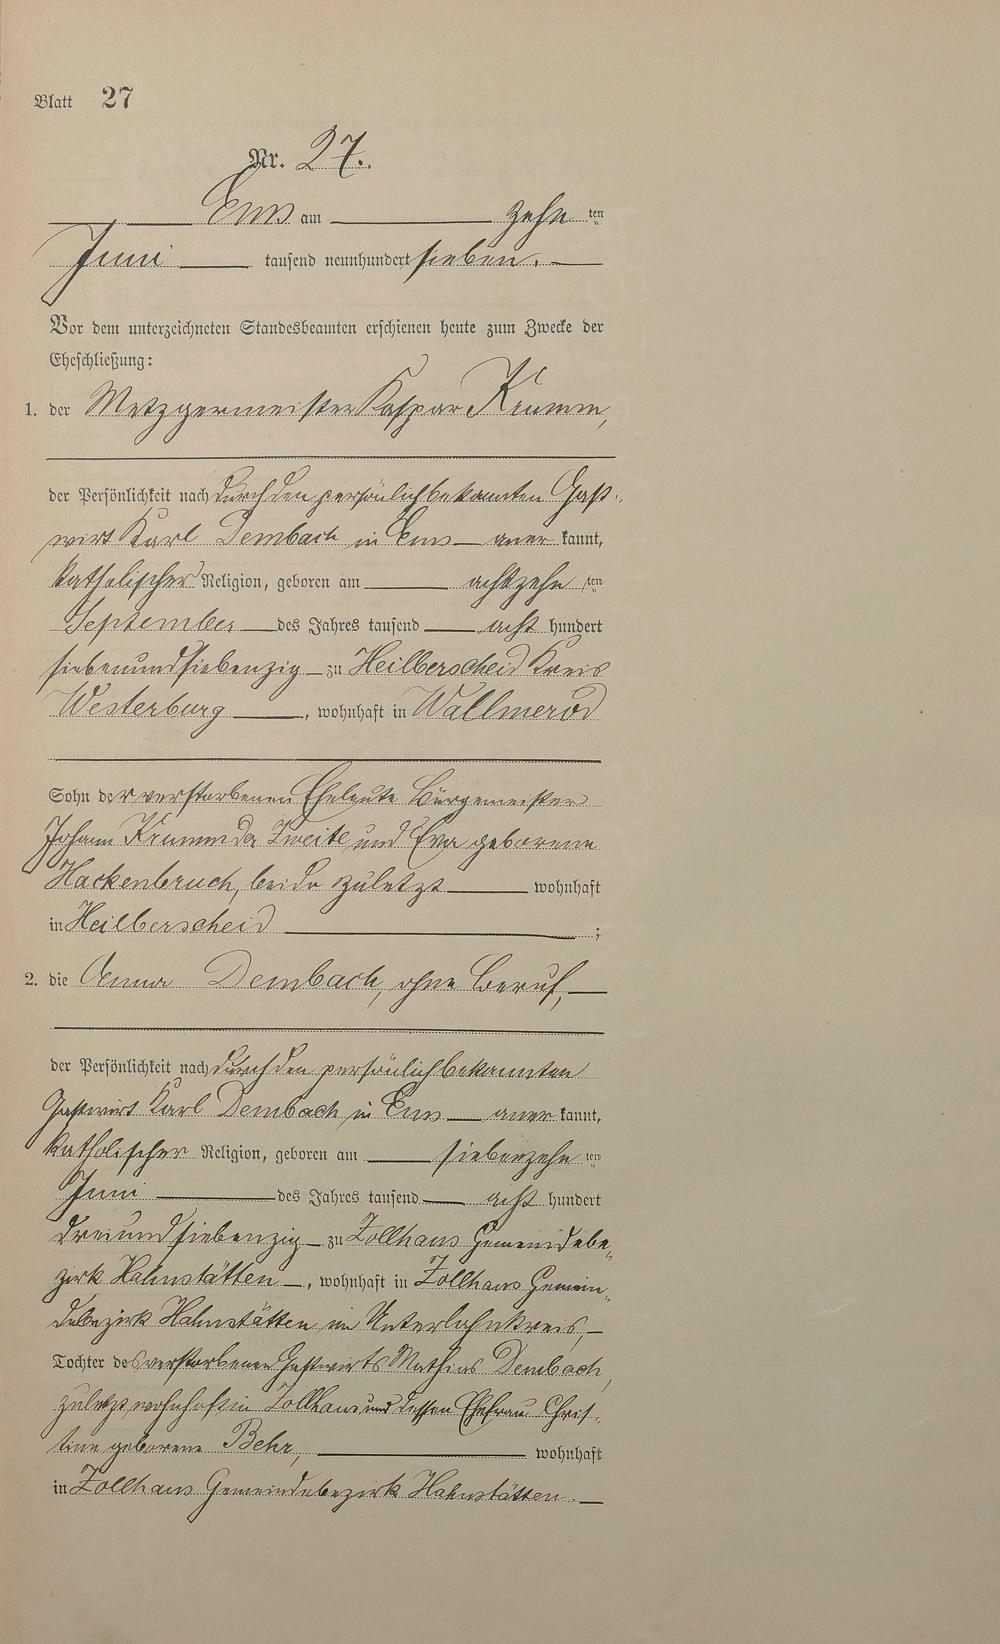 Blatt 27
Nr. 27.
Ems am zehn ten
Juni tausend neunhundert sieben.
Vor dem unterzeichneten Standesbeamten erschienen heute zum Zwecke der
Eheschließung:
1. der Metzgermeister Kaspar Krumm,
der Persönlichkeit nach durch den persönlich bekannten Gast-
wirt Karl Dembach in Ems aner kannt,
katholischer Religion, geboren am achtzehn ten
September des Jahres tausend acht hundert
siebenundsiebenzig zu Heilberscheid Kreis
Westerburg, wohnhaft in Wallmerod
Sohn der verstorbenen Eheleute Bürgermeister
Johann Krumm der Zweite und Eva geborene
Hackenbruch, beide zuletzt wohnhaft
in Heilberscheid ;
2. die Anna Dembach, ohne Beruf,
der Persönlichkeit nach durch den persönlich bekannten
Gastwirt Karl Dembach in Ems aner kannt,
katholischer Religion, geboren am siebenzehn ten
Juni des Jahres tausend acht hundert
dreiundsiebenzig zu Zollhaus Gemeindebe-
zirk Hahnstätten, wohnhaft in Zollhaus Gemein-
debezirk Hahnstätten im Unterlahnkreis,
Tochter des verstorbenen Gastwirts Mathias Dembach,
zuletzt wohnhaft in Zollhaus und dessen Ehefrau Chris-
tine geborene Behr, wohnhaft
in Zollhaus Gemeindebezirk Hahnstätten.